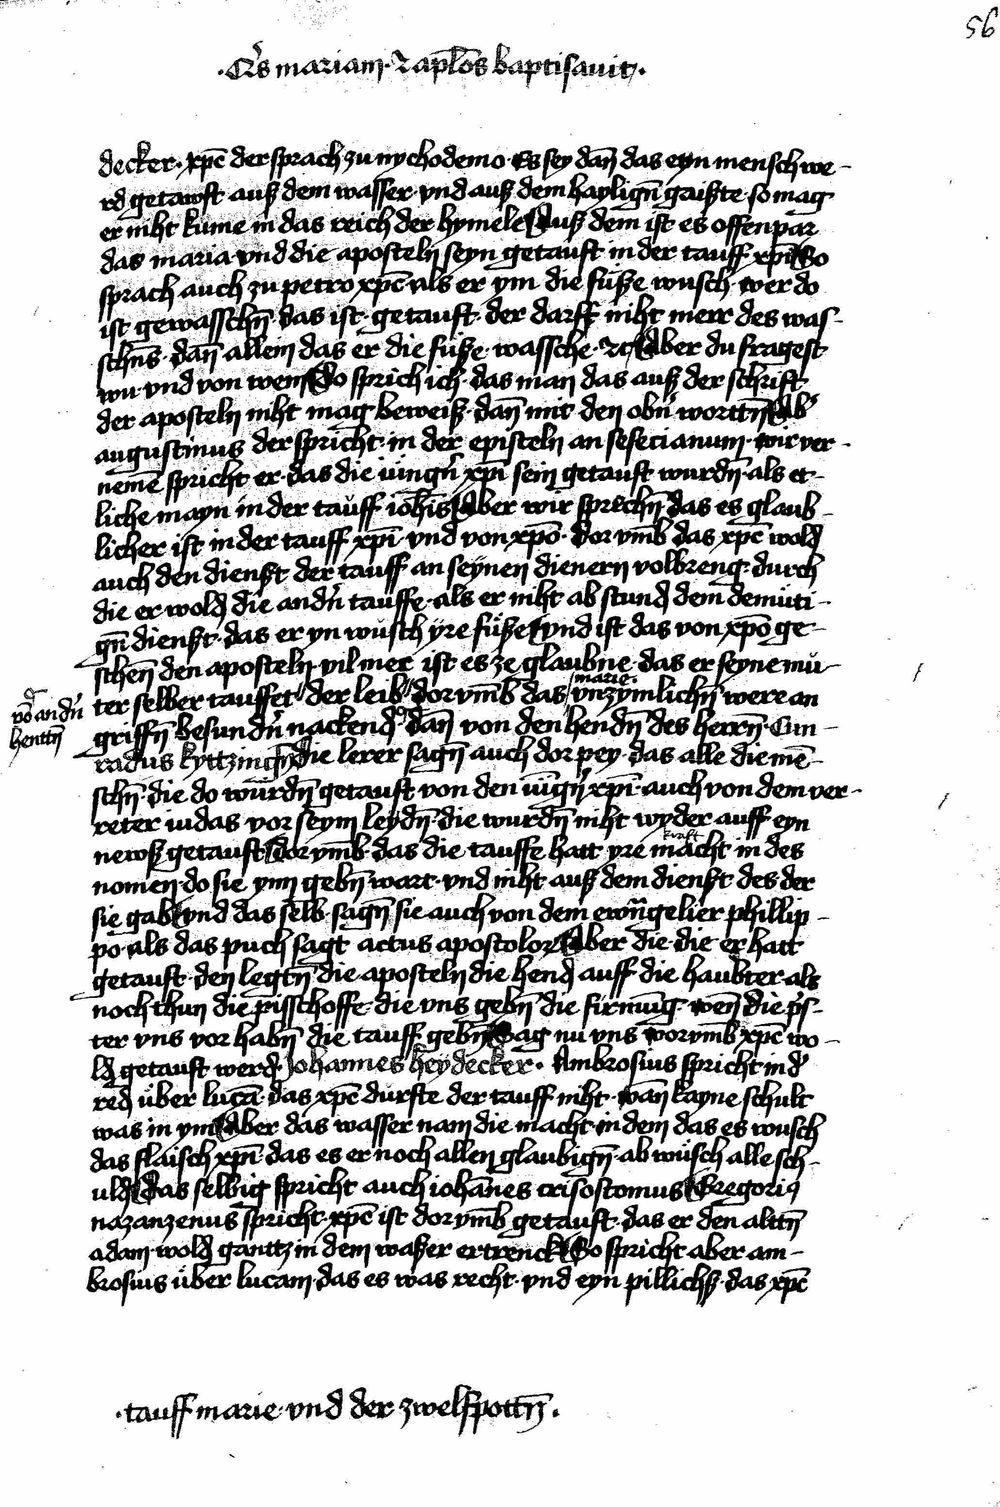 56
·Cri̅s mariam· ⁊ apl̅os baptisavit·
decker· xpc̅ der sprach zu nychodemo· Es sey dan̅ das eyn mensch we-
rd getawft auß dem wasser· vnd auß dem haylign̅ gaißte· so mag
er niht kume in das reich der hymele Auß dem ist es offenpar
das maria vnd die aposteln seyn getauft in der tauff xpi̅ So
sprach auch zu petro xpc̅ als er ym die füße wusch· wer do
ist gewasschn̅· das ist· getauft· der darff niht merr des was-
schn̅s· dan̅ allein das er die füße wassche· ⁊c̅ Aber du fragest
wu· vnd von wem So sprich ich· das man das auß der schrift
der aposteln niht mag beweiß· dan̅ mit den obn̅ worttn̅ Ab'
augustinus der spricht· in der episteln an selecianum· wir ver-
neme̅ spricht er· das die iüngn̅ xpi̅ sein getauft wurdn̅· als et-
liche mayn̅ in der tauff ioh̅is Aber wir sprechn̅ das es glaub-
licher ist in der tauff xpi̅· vnd von xpo̅· dorvmb das xpc̅ wold
auch den dienst der tauff an seynen dienern volbreng· durch
die er wold die andn̅ tauffe· als er niht ab stund dem demüti-
gn̅ dienst· das er yn wusch yre füße vnd ist das von xpo̅ ge-
schen̅ den aposteln· vil mer ist es ze glaubne· das er seyne mu-
ter selber tauffet· der leib marie· dorvmb das vnzymlichn̅ were an
vo̅ andn̅
henttn̅
griffn̅ besundn̅ nackend dan̅ von den hendn̅ des herrn̅· Cun-
radus kyttzingn̅ die lerer sagn̅ auch dorpey· das alle die me̅-
schn̅· die do wurdn̅ getauft von den iu̅gn̅ xpi̅· auch von dem ver-
reter iudas vor seym leydn̅· die wurdn̅ niht wyder auff eyn
newß getauft dorvmb· das die tauffe hatt yre kraft macht in des
nomen· do sie ynn gebn̅ wart· vnd niht auß dem dienst des der
sie gab vnd das selb· sagn̅ sie auch von dem ewangelier phillip-
po· als das puch sagt actus apostolor Aber die· die er hatt
getauft· den legtn̅ die aposteln die hend auff die haubter als
noch thun die pisschoffe· die vns gebn̅ die firmu̅g· wen̅ die pris-
ter vns vor habn̅ die tauff gebn̅ Sag nu vns worvmb xpc̅ wo-
ld getauft werd· Johannes heydecker· Ambrosius spricht in d'
red über luca̅· das xpc̅ durfte der tauff niht· wan̅ kayne schult
was in ym Aber das wasser nam die macht· in dem das es wusch
das flaisch xpi̅· das es er noch allen glaubign̅· ab wüsch alle sch-
uld Das selbig spricht auch ioha̅nes crisostomus Gregorius
nazanzenus spricht· xpc̅ ist dorvmb getauft· das er den alttn̅
adam wold ganttz in dem waßer ertrenck So spricht aber am-
brosius über lucam· das es was recht· vnd eyn pillichß· das xpc̅
·tauff marie vnd der zwelfpottn̅·